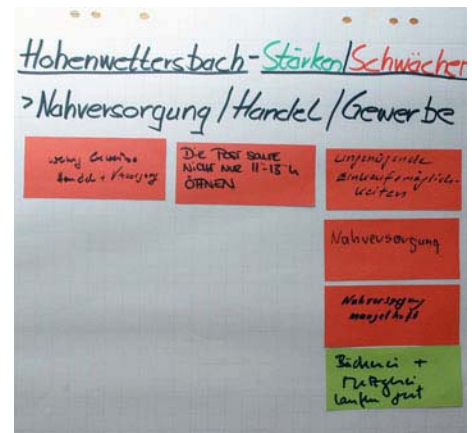 Hohenwettersbach-Stärken/Schwächen
>Nahversorgung/Handel/Gewerbe
wenig Gewerbe
Handel + Versorgung
Die Post sollte
nicht nur 11-13 h
öffnen
ungenügende
Einkaufsmöglich-
keiten
Nahversorgung
Nahversorgung
mangelhaft
Bäckerei +
Metzgerei
laufen gut